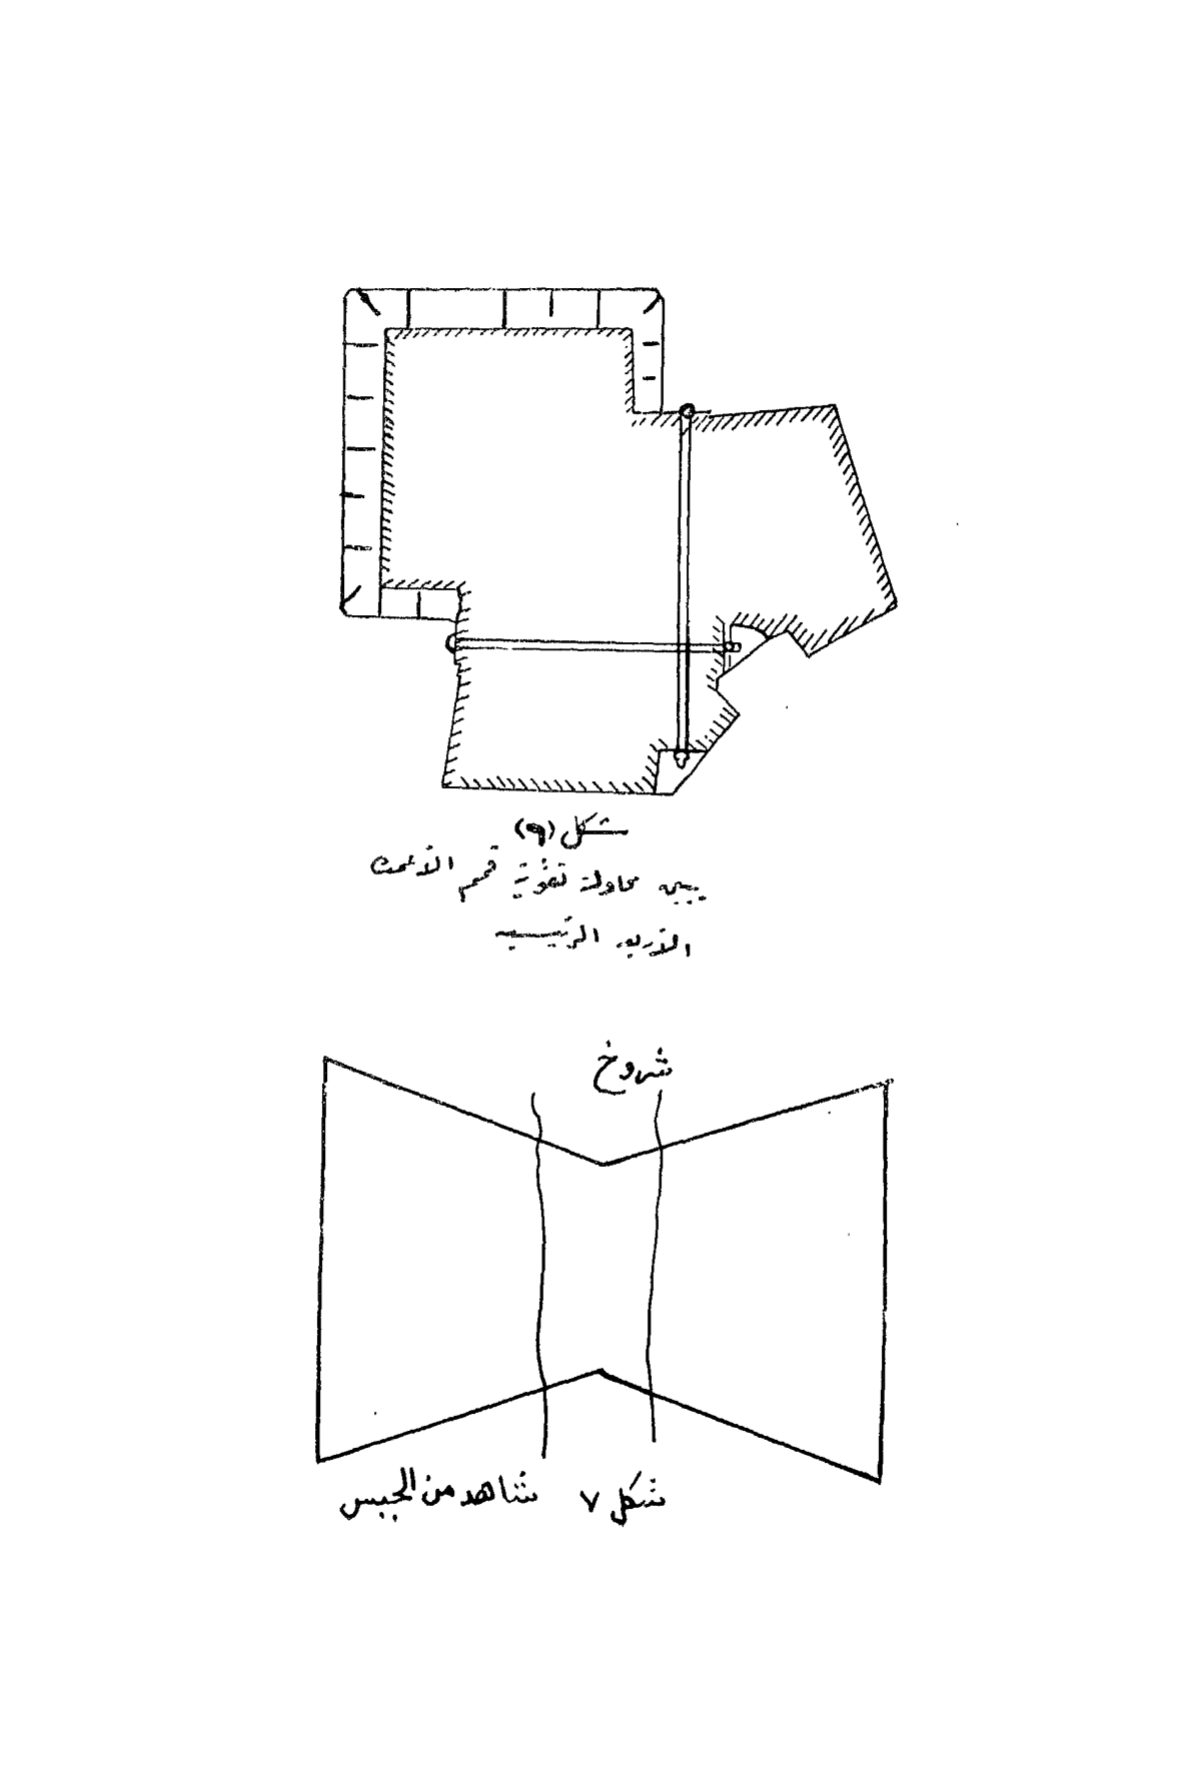 شكل (٩)
يبين محاولة تقوية قمم الأعمدة
الأربعه الرئيسيه
شروخ
شكل ٧ شاهد من الجبس